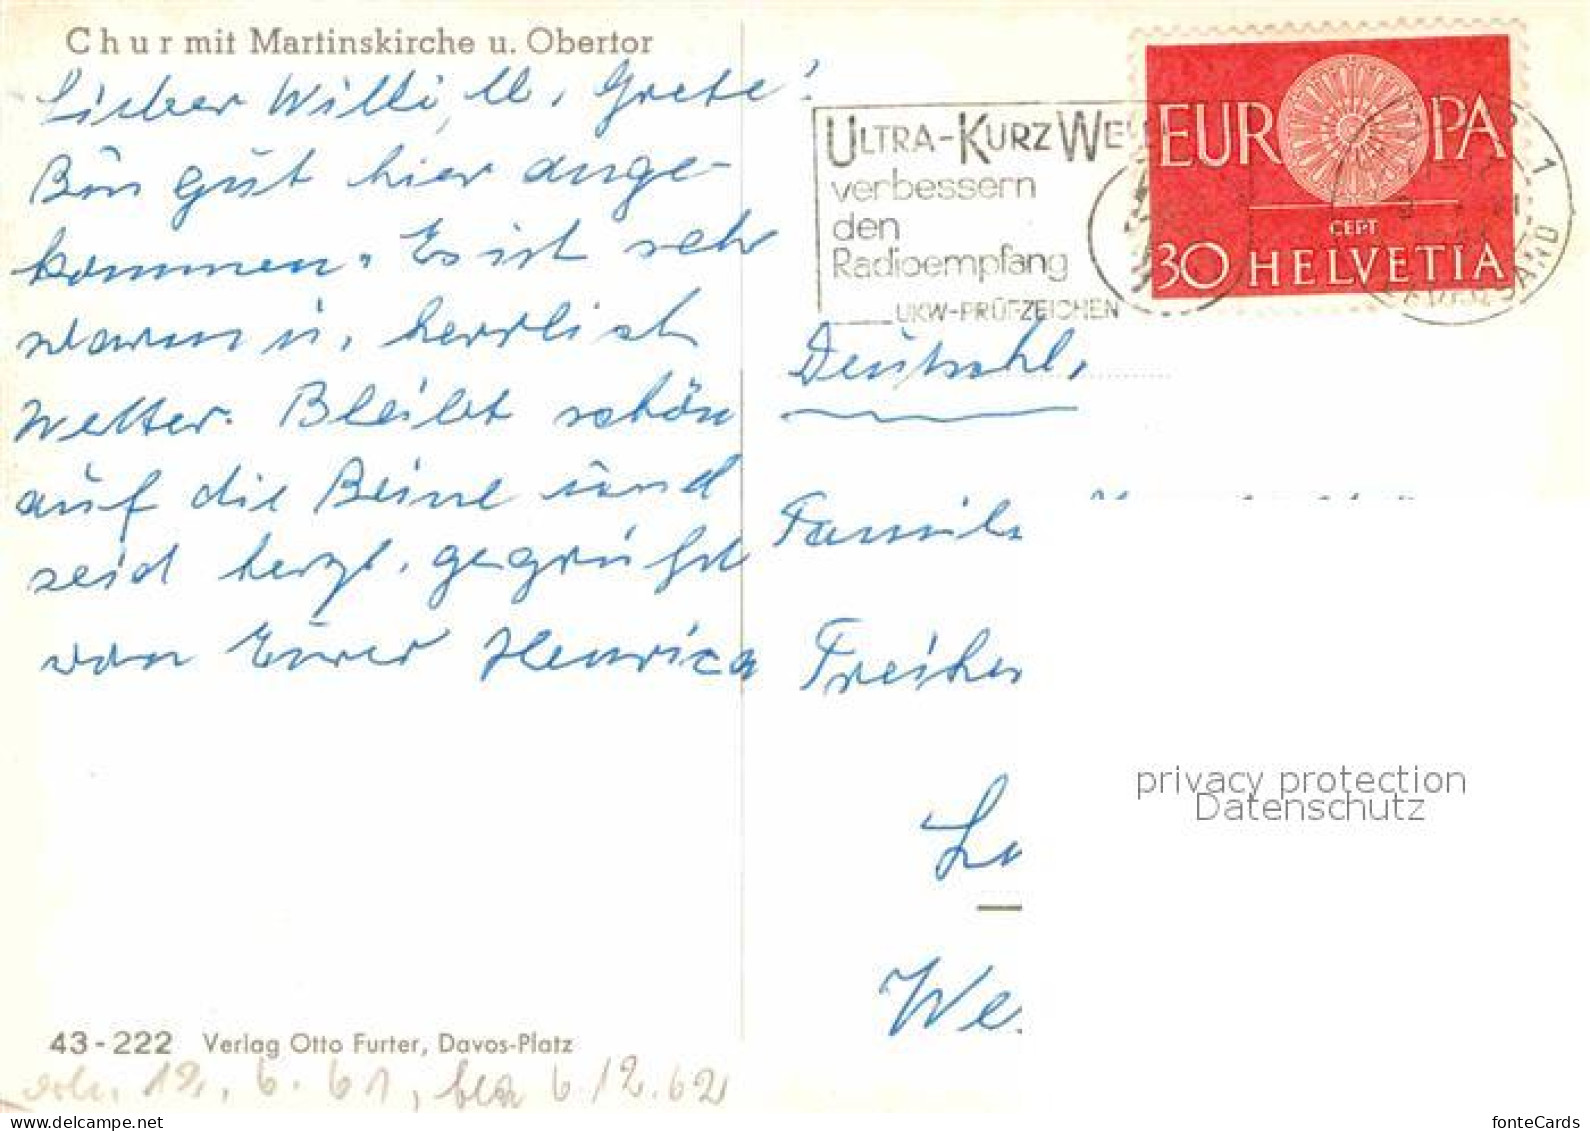 Chur mit Martinskirche u. Obertor
Lieber Willi, u. Grete!
Bin gut hier ange-
kommen. Es ist sehr
warm u. herrlich
Wetter. Bleibt schön
auf die Beine und
seid herzl. gegrüßt
von Eurer Henrica
43-222 Verlag Otto Furter, Davos-Platz
12.6.61, 6/2.62
ULTRA-KURZWE
verbessern
den
Radioempfang
UKW-PRÜFZEICHEN
EUROPA
CEPT
30 HELVETIA
1
VERSAND
Deutschl.
Famil
Freihe
L
We
privacy protection
Datenschutz
www.delcampe.net
fonteCards